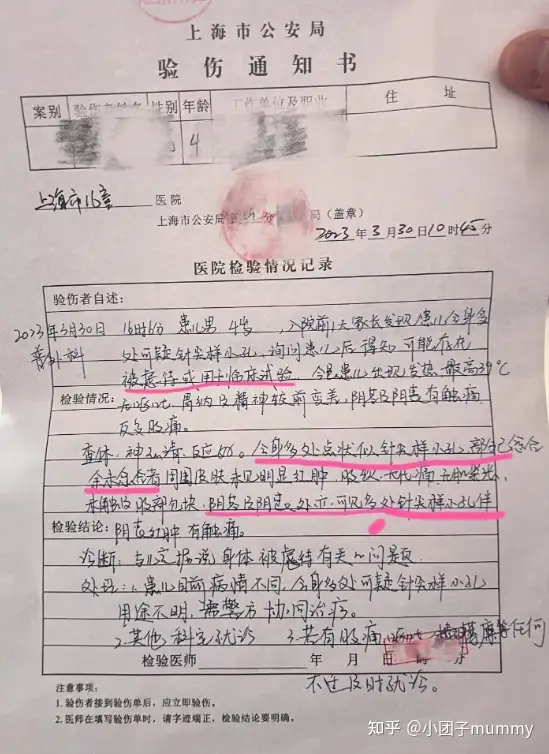 上海市公安局
验伤通知书
案别 验伤者姓名 性别 年龄 工作单位及职业 住址
4
上海市儿童 医院
上海市公安局 分 局(盖章)
2023年3月30日10时45分
医院检验情况记录
验伤者自述:
2023年3月30日 16时6分 患儿男 4岁 ,入院前1天家长发现患儿全身多
普外科 处可疑针尖样小孔,询问患儿后得知可能存在
被虐待或用于临床试验。今患儿出现发热,最高39℃
检验情况: 后 胃纳及精神较前变差,阴茎及阴囊有触痛
反复腹痛。
查体:神志清,反应好。全身多处点状似针尖样小孔,部分已愈合
余未愈合者周围皮肤未见明显红肿。腹软,无压痛
未触及腹部包块,阴茎及阴囊处亦可见多处针尖样小孔伴
检验结论: 阴茎红肿有触痛。
诊断:与 据说身体被虐待有关的问题
处理:1.患儿目前病情不同,全身多处可疑针尖样小孔
用途不明,需警方协同治疗。
2.其他科室就诊 3.若有腹痛 等任何
检验医师 年 月 日 时 分
不适及时就诊。
注意事项:
1.验伤者接到验伤单后,应立即验伤。
2.医师在填写验伤单时,请字迹端正,检验结论要明确。
知乎 @小团子mummy